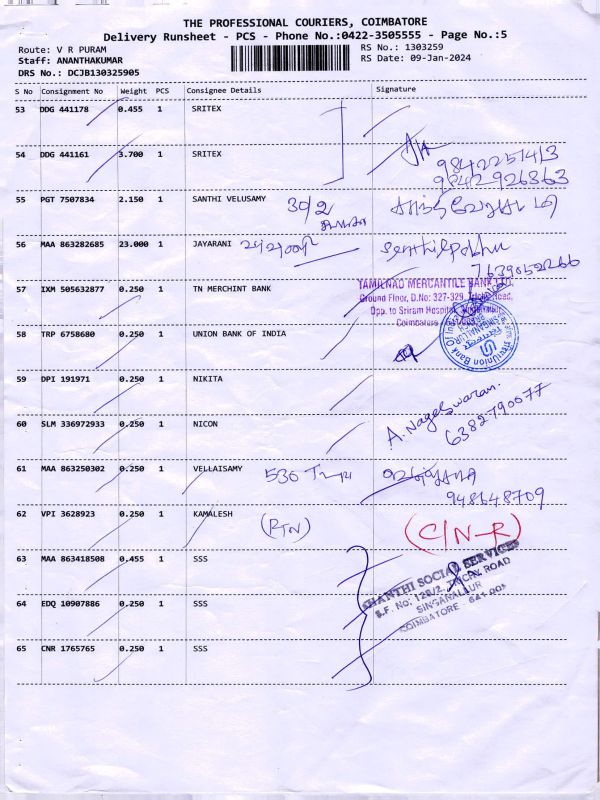 THE PROFESSIONAL COURIERS, COIMBATORE
Delivery Runsheet - PCS - Phone No.:0422-3505555 - Page No.:5
Route: V R PURAM
RS No.: 1303259
Staff: ANANTHAKUMAR
RS Date: 09-Jan-2024
DRS No.: DCJB130325905
S No Consignment No Weight PCS Consignee Details Signature
53 DDG 441178 0.455 1 SRITEX
54 DDG 441161 3.700 1 SRITEX
9842251413
9842926363
55 PGT 7507834 2.150 1 SANTHI VELUSAMY 30/2
56 MAA 863282685 23.000 1 JAYARANI
7639052266
57 IXM 505632877 0.250 1 TN MERCHINT BANK
TAMILNAD MERCANTILE BANK LTD.
Ground Floor, D.No: 327-329, Trichy Road,
Opp. to Sriram Hospital,
Coimbatore
58 TRP 6758680 0.250 1 UNION BANK OF INDIA
Union Bank Of India
59 DPI 191971 0.250 1 NIKITA
60 SLM 336972933 0.250 1 NICON
A. Nageswaran.
6382790077
61 MAA 863250302 0.250 1 VELLAISAMY 530
948648709
62 VPI 3628923 0.250 1 KAMALESH (RTN) (C/N-R)
63 MAA 863418508 0.455 1 SSS
SHANTHI SOCIAL SERVICES
S.F. No: 128/2, TRICHY ROAD
SINGANALLUR
COIMBATORE 641 005
64 EDQ 10907886 0.250 1 SSS
65 CNR 1765765 0.250 1 SSS